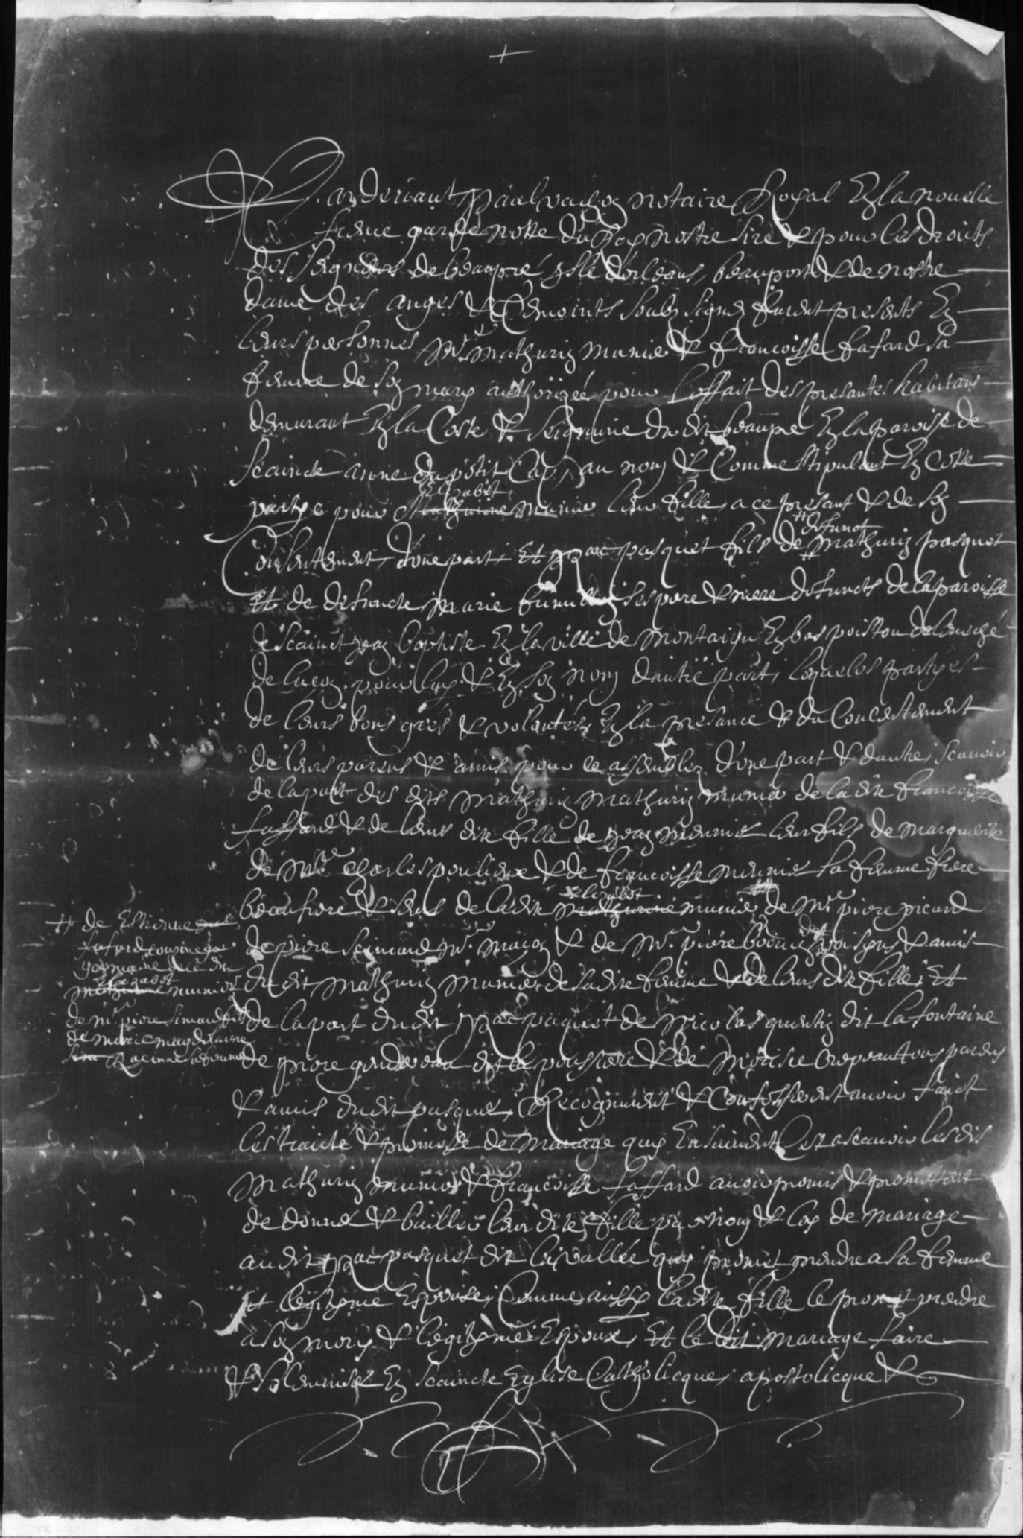 +
Pardevant paul vachon notaire Royal En la nouvelle
france garde notte du Roy nostre sire & pour les droicts
des seigneurs de beaupré isle d'orleans, beauport & de nostre
dame des anges & temoints soubz signez furent presents En
leurs personnes Mre Mathurin munier & françoisse fafard sa
femme de son mary authorizée pour l'effait des presantes habitans
demurant En la Coste & seigneurie dudit beaupré En la paroisse de
saincte anne du petit Cap, au nom & Comme stipulant En cette
partye pour
Elizabet
Mathurine munier leur fille a ce presant & de son
Consentement d'une part Et Izaac pasquet fils de
defunct
Mathurin pasquet
Et de defuncte Marie ses pere & mere defuncts de la paroisse
de sainct jean baptiste En la ville de montaigu En bas poittou de l'evesché
de luçon pour luy & En son nom d'autre part, lesquelles partyes
de leurs bons grés & volontés En la presance & du Consentement
de leurs parens & amis pour ce assemblez d'une part & d'autre, scavoir
de la part des dits Mathurin munier de ladite francoisse
faffard & de leur dite fille de jean meunier leur fils de marguerite
de Mre Charles pouliot & de francoisse meunier sa femme frere
beau frere & seurs de ladite
Elizabet
Mathurine munier de Mre piere picard
de piere Mre Maçon & de Mre piere voisins & amis
dudit Mathurin munier de sadite femme & de leurs dite fille, Et
de la part dudit Izaac paquet de Nicolas quentin dit la fontaine
de piere dit la poussiere & de tous parens
& amis dudit pasquet, Recognurent & Confesserent avoir faict
les traicté & promesse de Mariage quy Ensuivent Cest ascavoir lesdits
Mathurin munier & francoisse faffard avoir promis & promettent
de donner & bailler leur dite fille par nom & loy de Mariage
audit Izaac pasquet dit la vallée quy promet prendre a sa femme
et legityme Espouse, Comme aussy ladite fille le promet prendre
a son mary & legityme Espoux, Et le dit mariage faire
& solemniser En saincte Eglise Catholicque, apostolicque &
# de Estienne
fafard cousine
germaine
Elizabet
mathurine munier
de Mre piere simaud
de marie
sa femme